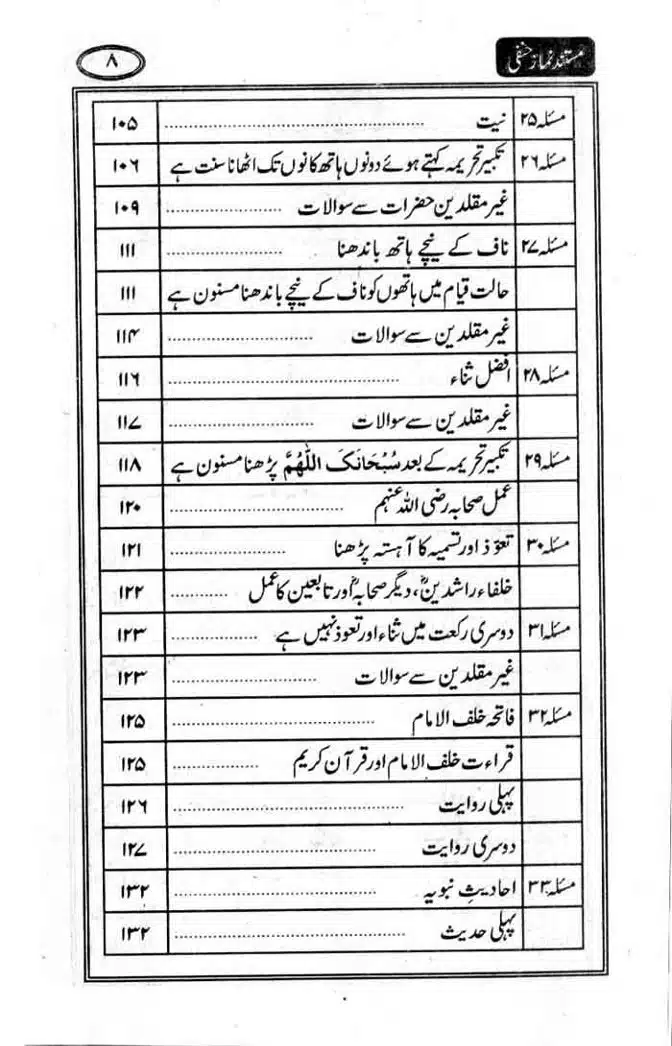 مستند نماز حنفی
۸
مسئلہ ۲۵ نیت ........................ ۱۰۵
مسئلہ ۲۶ تکبیر تحریمہ کہتے ہوئے دونوں ہاتھ کانوں تک اٹھانا سنت ہے ۱۰۶
غیر مقلدین حضرات سے سوالات ............ ۱۰۹
مسئلہ ۲۷ ناف کے نیچے ہاتھ باندھنا ............ ۱۱۱
حالت قیام میں ہاتھوں کو ناف کے نیچے باندھنا مسنون ہے ۱۱۱
غیر مقلدین سے سوالات ............ ۱۱۴
مسئلہ ۲۸ افضل ثناء ............ ۱۱۶
غیر مقلدین سے سوالات ............ ۱۱۷
مسئلہ ۲۹ تکبیر تحریمہ کے بعد سُبْحَانَکَ اللّٰھُمَّ پڑھنا مسنون ہے ۱۱۸
عمل صحابہ رضی اللہ عنہم ............ ۱۲۰
مسئلہ ۳۰ تعوّذ اور تسمیہ کا آہستہ پڑھنا ............ ۱۲۱
خلفاء راشدینؓ، دیگر صحابہؓ اور تابعین کا عمل ............ ۱۲۲
مسئلہ ۳۱ دوسری رکعت میں ثناء اور تعوذ نہیں ہے ............ ۱۲۳
غیر مقلدین سے سوالات ............ ۱۲۳
مسئلہ ۳۲ فاتحہ خلف الامام ............ ۱۲۵
قراءت خلف الامام اور قرآن کریم ............ ۱۲۵
پہلی روایت ............ ۱۲۶
دوسری روایت ............ ۱۲۷
مسئلہ ۳۳ احادیثِ نبویہ ............ ۱۳۲
پہلی حدیث ............ ۱۳۲